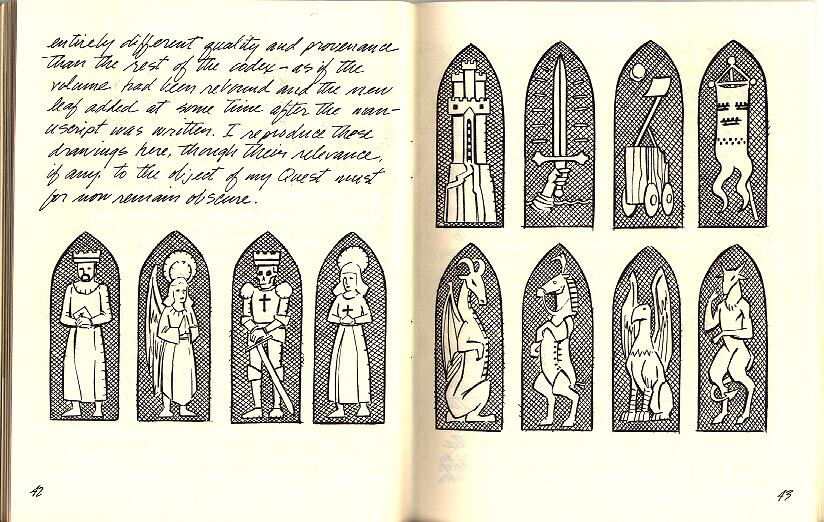 entirely different quality and provenance
than the rest of the codex – as if the
volume had been rebound and the new
leaf added at some time after the man-
uscript was written. I reproduce those
drawings here, though their relevance,
if any, to the object of my Quest must
for now remain obscure.
42
43